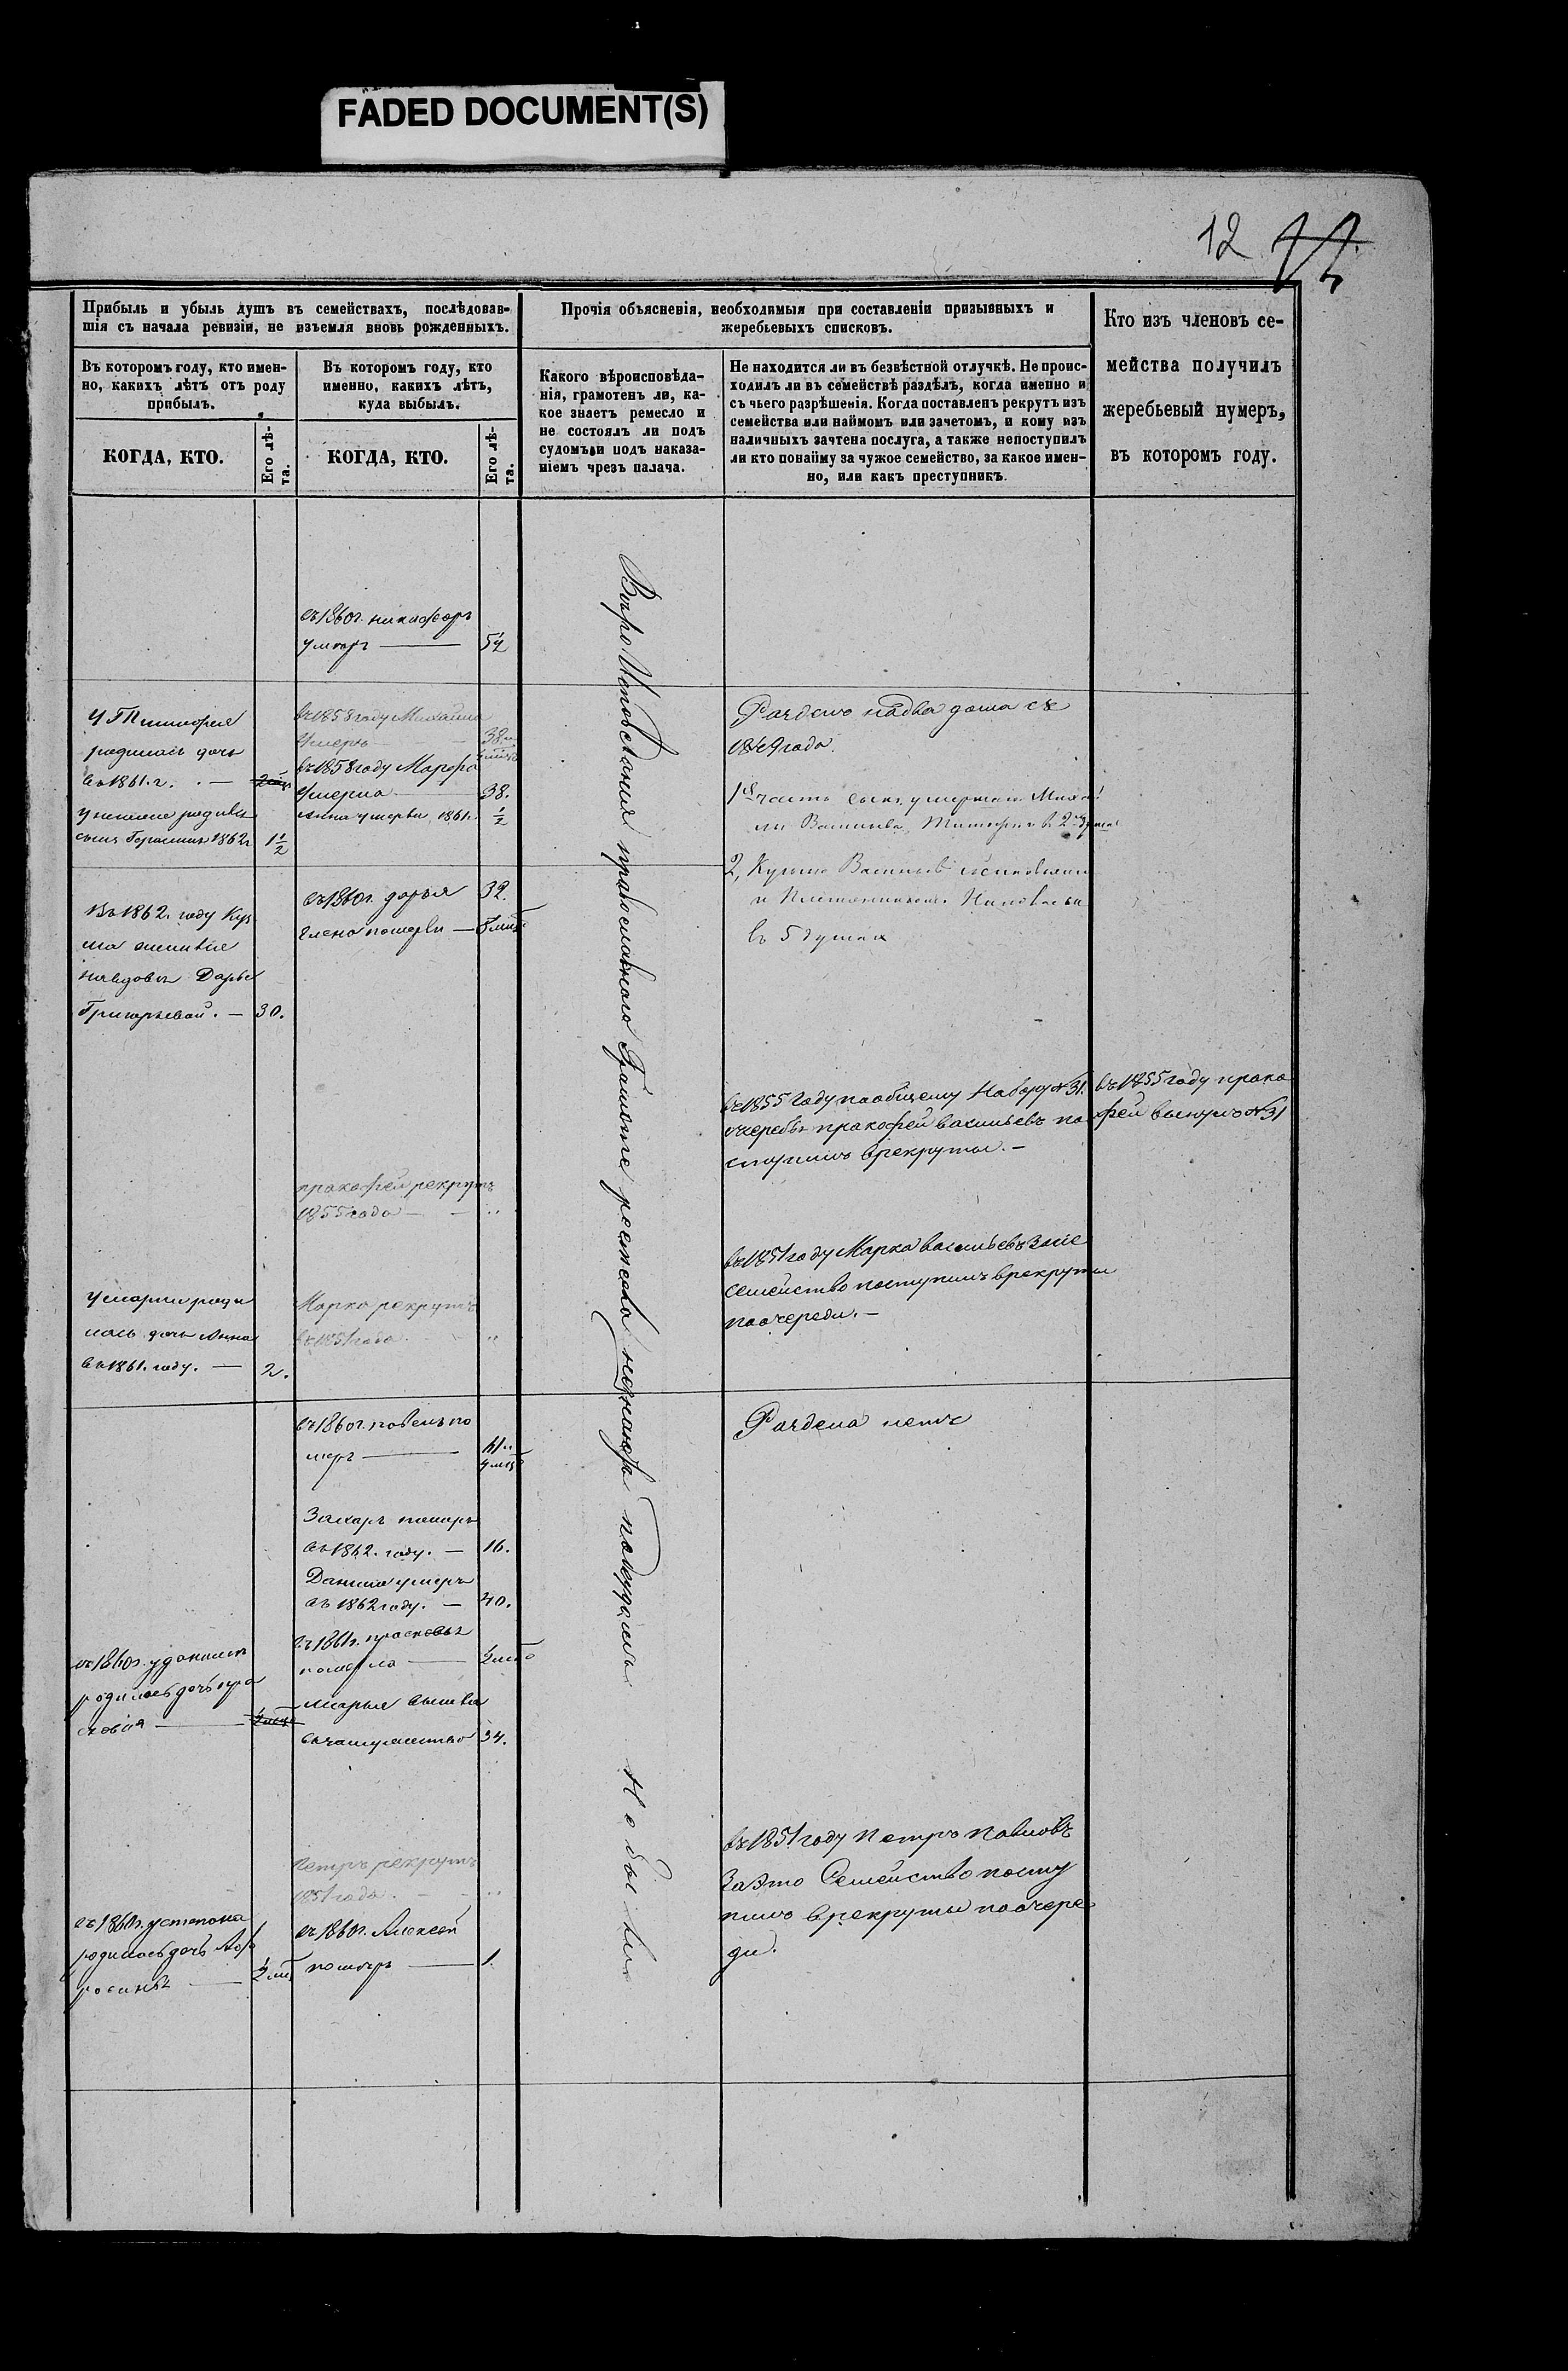 FADED DOCUMENT(S)
12
Прибыль и убыль душъ въ семействахъ, послѣдовав-
шія съ начала ревизіи, не изъемля вновь рожденныхъ.
Въ которомъ году, кто имен-
но, какихъ лѣтъ отъ роду
прибылъ.
КОГДА, КТО.
Его лѣ-
та.
Въ которомъ году, кто
именно, какихъ лѣтъ,
куда выбылъ.
КОГДА, КТО.
Его лѣ-
та.
Прочія объясненія, необходимыя при составленіи призывныхъ и
жеребьевыхъ списковъ.
Какого вѣроисповѣда-
нія, грамотенъ ли, ка-
кое знаетъ ремесло и
не состоялъ ли подъ
судомъ и подъ наказа-
ніемъ чрезъ палача.
Не находится ли въ безвѣстной отлучкѣ. Не проис-
ходилъ ли въ семействѣ раздѣлъ, когда именно и
съ чьего разрѣшенія. Когда поставленъ рекрутъ изъ
семейства или наймомъ или зачетомъ, и кому изъ
наличныхъ зачтена послуга, а также непоступилъ
ли кто понайму за чужое семейство, за какое имен-
но, или какъ преступникъ.
Кто изъ членовъ се-
мейства получилъ
жеребьевый нумеръ,
въ которомъ году.
въ 1860 г. никифоръ
умеръ — 54
родилась дочь
въ 1861. г. —
сынъ Герасимъ 1862 г 1 1/2
Въ 1862. году Куз
ма
Дарье
Григорьевой. — 30.
родилась дочь Анна
въ 1861. году. — 2.
въ 1860 г. у данилы
родилась дочь пра
сковія —
въ 1860 г. у степана
родилась дочь
въ 1858 году Михайла
умеръ — 38
въ 1858 году Марфа
умерла — 38.
анна умерла 1861 г. 1/2
въ 1860 г. дарья 32.
елена померли —
прокофей рекрутъ
1855 года —
Марко рекрутъ
въ 1851 года —
въ 1860 г. павелъ по
меръ —
Захаръ померъ
въ 1862. году. — 16.
Данила умеръ
въ 1862 году. — 40.
въ 1861 г. прасковья
померла —
марья вышла
взамужество 34.
Петръ рекрутъ
1851 года. —
въ 1860 г. Алексей
померъ — 1.
Веро Исповедания православного Грамоте ремесла незнаютъ подсудомъ не были
Раздело надва дома съ
года.
1я часть сынъ умершаго Миха
Васильева, Тимофей в 2 душа
2, Кузма Васильевъ
и Племянникомъ
въ 5 душахъ
въ 1855 году пообщему Набору № 31.
очередь прокофей васильевъ по
ступилъ врекруты. —
въ 1851 году Марка васильевъ
семейство поступилъ врекруты
поочереди. —
Раздела нетъ
въ 1851 году Петръ Павловъ
За это Семейство посту
пилъ врекруты поочере
ди.
въ 1855 году проко
фей вынулъ № 31